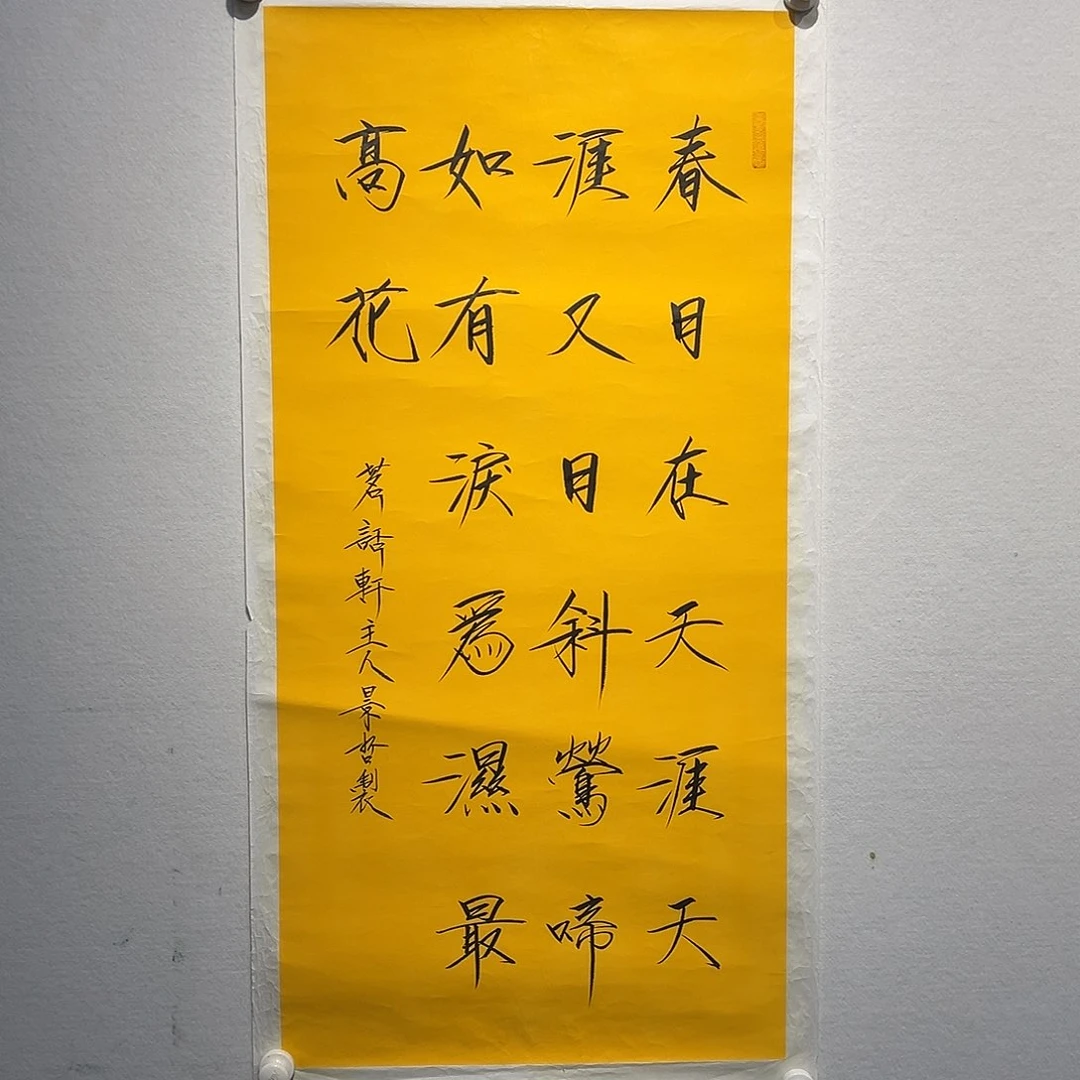 春日在天涯天
涯又日斜鶯啼
如有淚爲濕最
高花
茗話軒主人景哲製